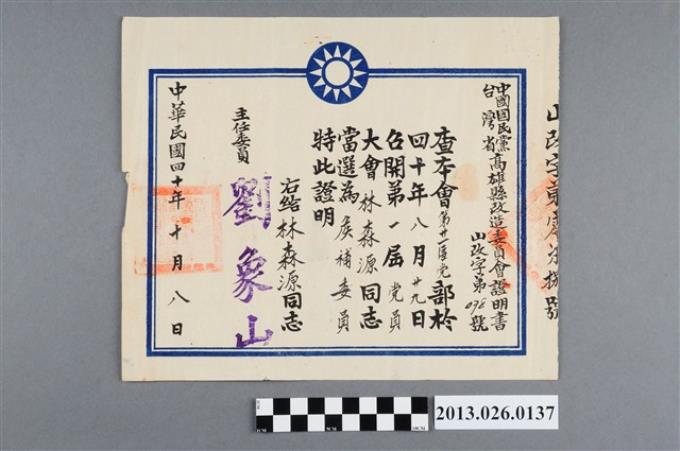 中國國民黨高雄縣改造委員會證明書
台灣省
山改字第098號
查本會第廿一區党部於
四十年八月廿九日
召開第一屆党員
大會林森源同志
當選為候補委員
特此證明
右給林森源同志
主任委員
劉象山
中華民國四十年十月八日
2013.026.0137